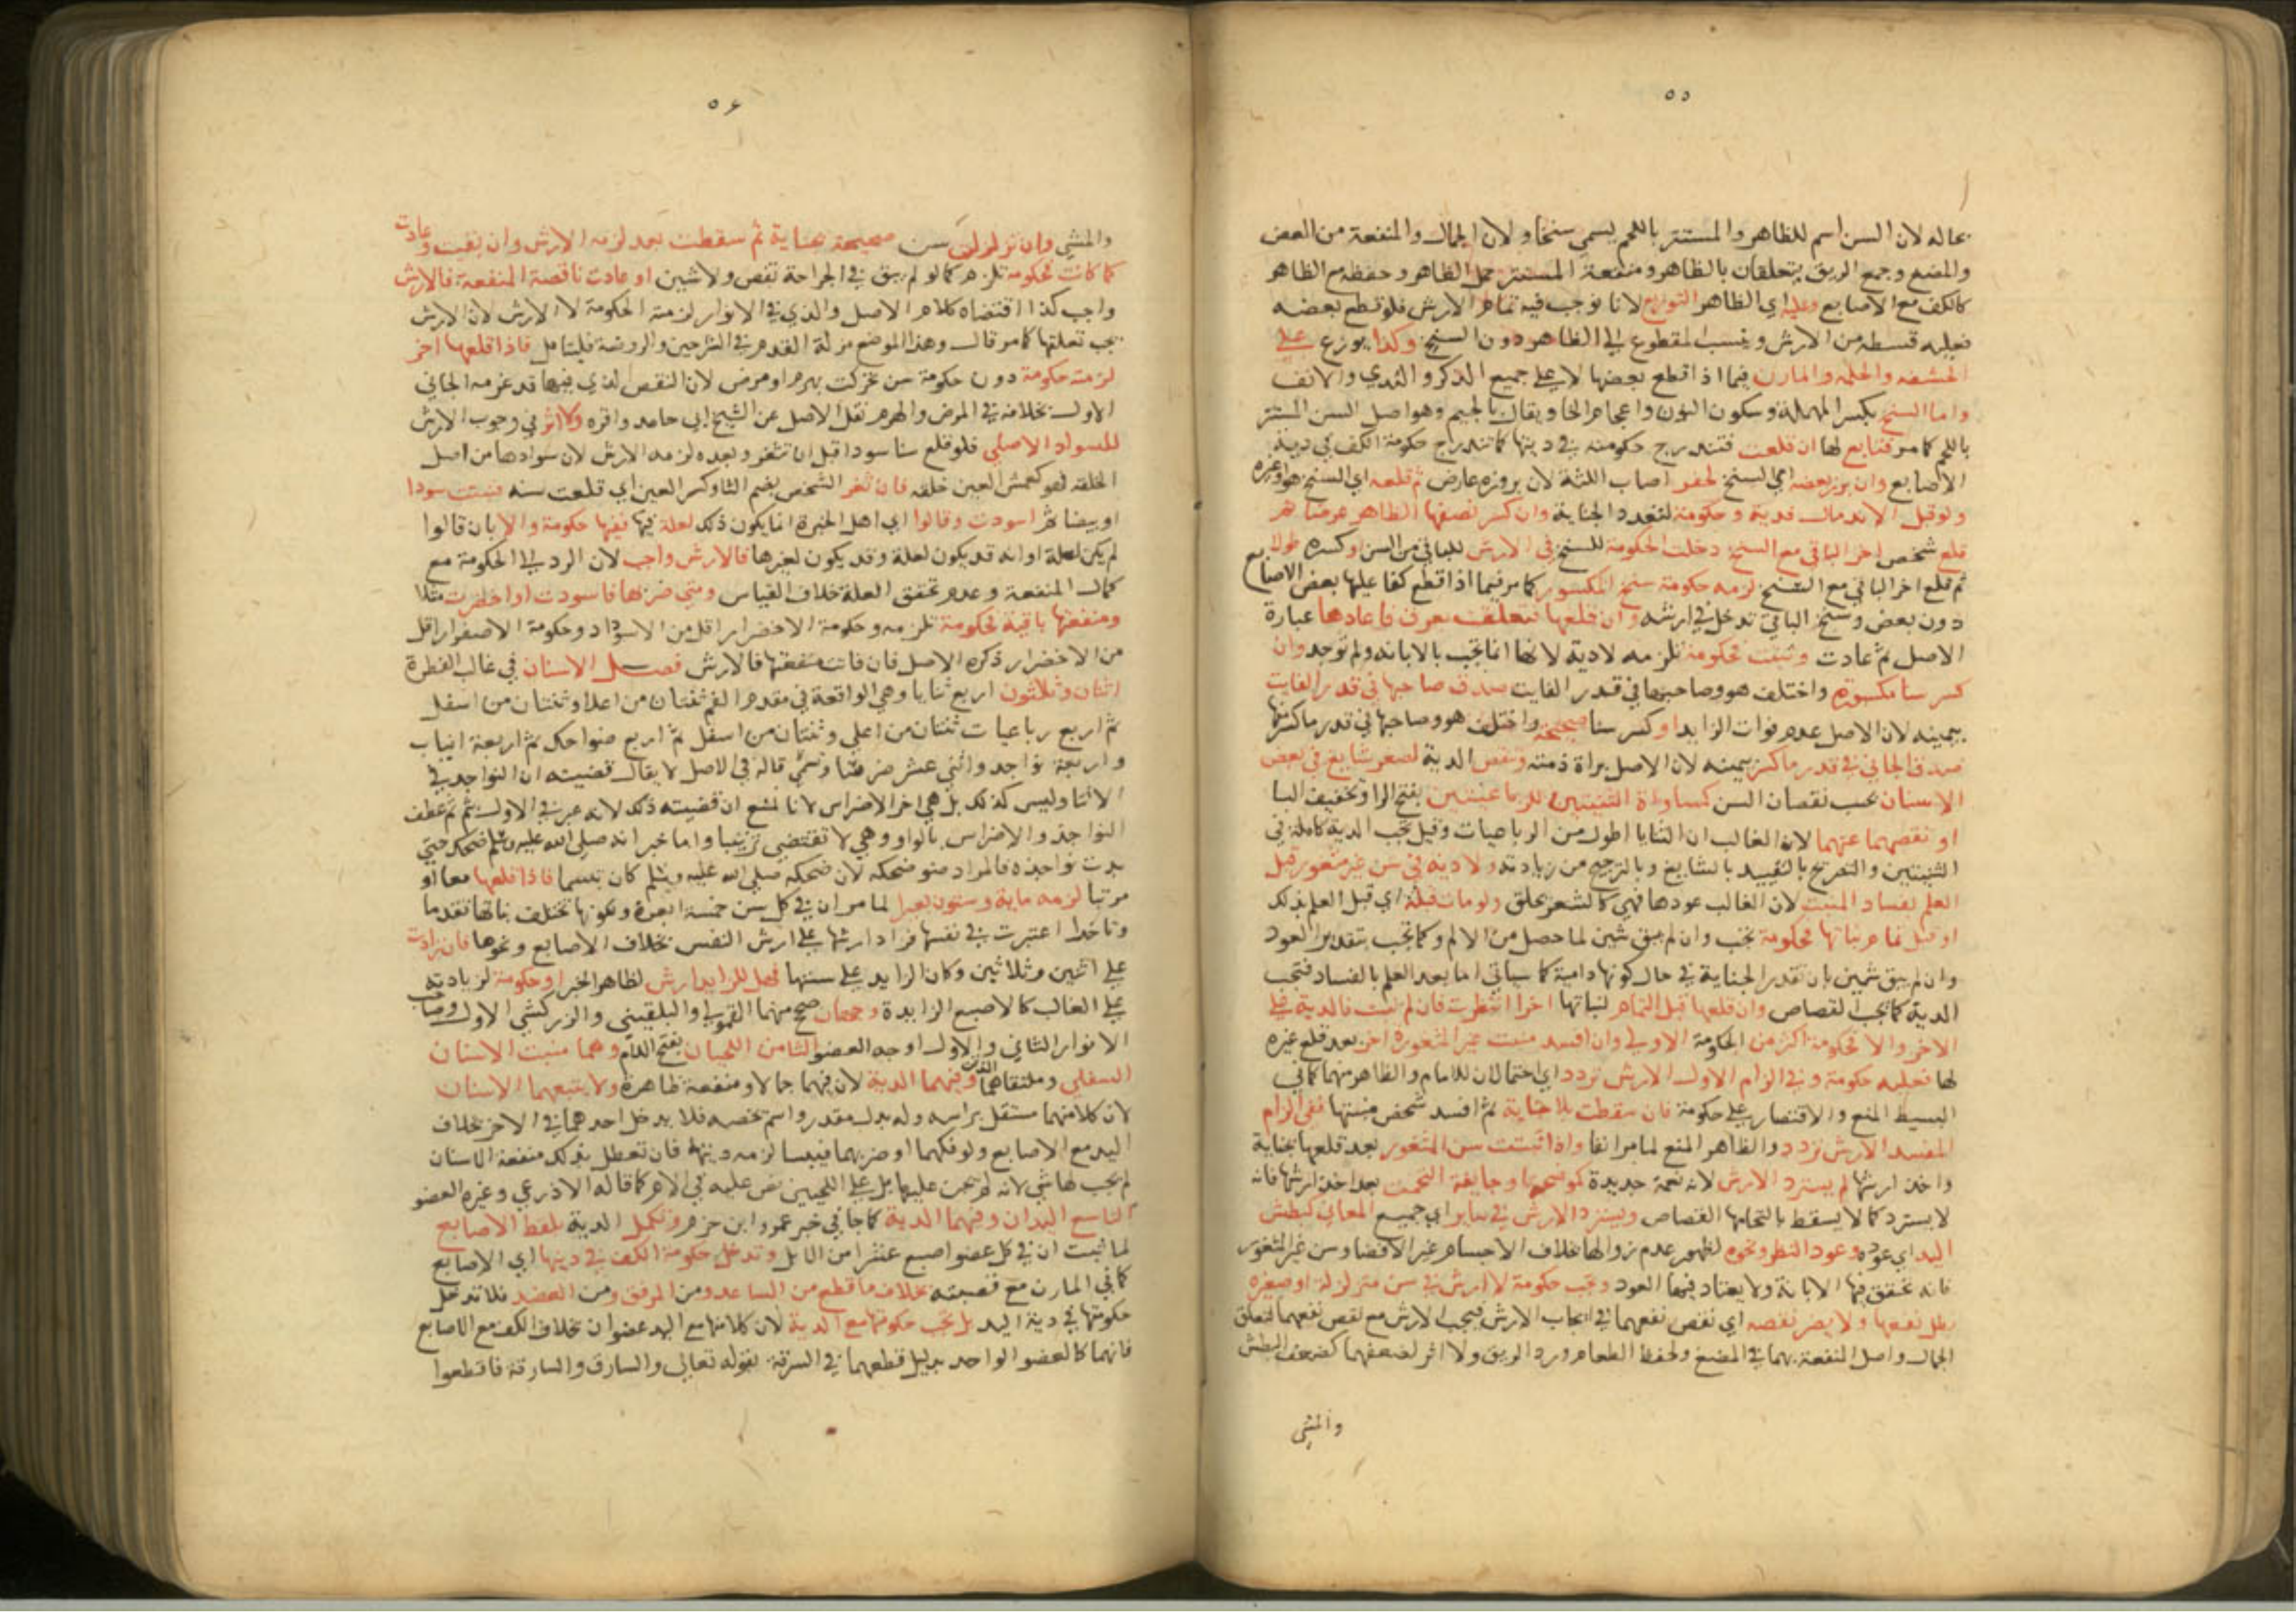 ٥٥
بحاله لان السن اسم للظاهر والمستتر باللحم يسمى سنخا ولان الجمال والمنفعة من العض
والمضغ وجمع الريق يتعلقان بالظاهر ومنفعة المستتر حمل الظاهر وحفظه مع الظاهر
كالكف مع الاصابع وعليه اي الظاهر التوزيع لانا نوجب فيه تمام الارش فلو قطع بعضه
فعليه قسطه من الارش وينسب المقطوع الي الظاهر دون السنخ وكذا يوزع علي
الحشفه والحلمه والمارن فيما اذا قطع بعضها لا علي جميع الذكر والثدي والانف
واما السنخ بكسر المهملة وسكون النون واعجام الخا ويقال بالجيم وهو اصل السن المستتر
باللحم كما مر فتابع لها ان قلعت فتندرج حكومته في ديتها كما تندرج حكومة الكف في دية
الاصابع وان برز بعضه اي السنخ لحفر اصاب اللثة لان بروزه عارض ثم قلعه اي السنخ هو او غيره
ولو قبل الاندمال فدية وحكومة لتعدد الجناية وان كسر نصفها الظاهر عرضا ثم
قلع شخص اخر الباقي مع السنخ دخلت الحكومة للسنخ في الارش للباقي من السن او كسره طولا
ثم قلع اخر الباقي مع السنخ لزمه حكومة سنخ المكسور كما مر فيما اذا قطع كفا عليها بعض الاصابع
دون بعض وسنخ الباقي تدخل في ارشه وان قلعها فتعلقت بعرق فاعادها عبارة
الاصل ثم عادت وثبتت فحكومة تلزمه لا دية لانها انما تجب بالابانه ولم توجد وان
كسر سنا مكسورة واختلف هو وصاحبها في قدر الفايت صدق صاحبها في قدر الفايت
بيمينه لان الاصل عدم فوات الزايد او كسر سنا صحيحة واختلف هو وصاحبها في قدر ما كسر منها
صدق الجاني في قدر ما كسر بيمينه لان الاصل براة ذمته وتنقص الدية لصغر شايع في بعض
الاسنان بحسب نقصان السن كمساواة الثنيتين للرباعيتين بفتح الرا وتخفيف اليا
او نقصهما عنهما لان الغالب ان الثنايا اطول من الرباعيات وقيل تجب الدية كاملة في
الثنيتين والتصريح بالتقييد بالشايع وبالترجيح من زيادته ولا دية في سن غير مثغور قبل
العلم بفساد المنبت لان الغالب عودها فهي كالشعر يحلق ولو مات قبله اي قبل العلم بذلك
او قبل تمام نباتها فحكومة تجب وان لم يبق شين لما حصل من الالم وكما تجب بتقدير العود
وان لم يبق شين بان تقدر الجناية في حال كونها دامية كما سياتي اما بعد العلم بالفساد فتجب
الدية كما يجب القصاص وان قلعها قبل التمام لنباتها اخر انتظرت فان لم تنبت فالدية علي
الاخر والا فحكومة اكثر من الحكومة الاولي وان افسد منبت غير المثغورة اخر بعد قلع غيره
لها فعليه حكومة وفي الزام الاول الارش تردد اي احتمالان للامام والظاهر منهما كما في
البسيط المنع والاقتصار علي حكومة فان سقطت بلا جناية ثم افسد شخص منبتها ففي الزام
المفسد الارش تردد والظاهر المنع لما مر انفا واذا نبتت سن المثغور بعد قلعها بجناية
واخذ ارشها لم يسترد الارش لانه نعمة جديدة كموضحة وجايفة التحمت بعد اخذ ارشها فانه
لا يسترد كما لا يسقط بالتحامها القصاص ويسترد الارش في ساير اي جميع المعاني كبطش
اليد اي عوده وعود النظر ونحوه لظهور عدم زوالها بخلاف الاجسام غير الافضا وسن غير المثغور
فانه تحقق فيها الابانة ولا يعتاد فيها العود وتجب حكومة لا ارش في سن متزلزلة او صغيرة
بطل نفعها ولا يضر نقصه اي نقص نفعهما في ايجاب الارش فيجب الارش مع نقص نفعهما لتعلق
الجمال واصل المنفعة بهما في المضغ وحفظ الطعام ورد الريق ولا اثر لضعفهما كضعف البطش
والمشي
٥٦
والمشي وان تزلزلت سن صحيحة بجناية ثم سقطت بعد لزمه الارش وان بقيت وعادت
كما كانت فحكومة تلزم كما لو لم يبق في الجراحة نقص ولا شين او عادت ناقصة المنفعة فالارش
واجب كذا اقتضاه كلام الاصل والذي في الانوار لزمته الحكومة لا الارش لان الارش
يجب تعلقها كما مر قال وهذا الموضع مزلة القدم في الشرحين والروضة فليتامل فاذا قلعها اخر
لزمته حكومة دون حكومة سن تحركت بهرم او مرض لان النقص الذي فيها قد غرمه الجاني
الاول بخلافه في المرض والهرم نقل الاصل عن الشيخ ابي حامد واقره ولا اثر في وجوب الارش
للسواد الاصلي فلو قلع سنا سودا قبل ان تثغر وبعده لزمه الارش لان سوادها من اصل
الخلقه فهو كعمش العين خلقه فان ثغر الشخص بضم الثا وكسر الغين اي قلعت سنه فنبتت سودا
او بيضا ثم اسودت وقالوا اي اهل الخبرة انما يكون ذلك لعلة فيها ففيها حكومة والا بان قالوا
لم يكن لعلة او انه قد يكون لعلة وقد يكون لغيرها فالارش واجب لان الرد الي الحكومة مع
كمال المنفعة وعدم تحقق العلة خلاف القياس ومتي ضربها فاسودت او اخضرت مثلا
ومنفعتها باقية فحكومة تلزمه وحكومة الاخضرار اقل من الاسوداد وحكومة الاصفرار اقل
من الاخضرار ذكره الاصل فان فاتت منفعتها فالارش فصل الاسنان في غالب الفطرة
اثنان وثلاثون اربع ثنايا وهي الواقعة في مقدم الفم ثنتان من اعلا وثنتان من اسفل
ثم اربع رباعيات ثنتان من اعلي وثنتان من اسفل ثم اربع ضواحك ثم اربعة انياب
واربعة نواجد واثني عشر ضرسا وتسمي قاله في الاصل لا يقال قضيته ان النواجد في
الاثنا وليس كذلك بل هي اخر الاضراس لانا نمنع ان قضيته ذلك لانه عبر في الاول بثم ثم عطف
النواجذ والاضراس بالواو وهي لا تقتضي ترتيبا واما خبر انه صلي الله عليه وسلم ضحك حتي
بدت نواجذه فالمراد ضواحكه لان ضحكه صلي الله عليه وسلم كان تبسما فاذا قلعها معا او
مرتبا لزمه ماية وستون بعيرا لما مر ان في كل سن خمسة ابعرة ولكونها تختلف نباتها تقدما
وتاخرا اعتبرت في نفسها فزاد ارشها علي ارش النفس بخلاف الاصابع ونحوها فان زادت
علي اثنين وثلاثين وكان الزايد علي سنتها فهل للزايد ارش لظاهر الخبر او حكومة لزيادته
علي الغالب كالاصبع الزايدة وجهان صحح منهما القمولي والبلقيني والزركشي الاول وصاحب
الانوار الثاني والاول اوجه العضو الثامن اللحيان بفتح اللام وهما منبت الاسنان
السفلي وملتقاهما الذقن وفيهما الدية لان فيهما جمالا ومنفعة ظاهرة ولا يتبعهما الاسنان
لان كلا منهما مستقل براسه وله بدل مقدر واسم تخصه فلا يدخل احدهما في الاخر بخلاف
اليد مع الاصابع ولو فكهما او ضربهما فيبسا لزمه ديتهما فان تعطل بذلك منفعة الاسنان
لم يجب لها شي لانه لم يجن عليها بل علي اللحيين نص عليه في الام كما قاله الاذرعي وغيره العضو
التاسع اليدان وفيهما الدية كما جا في خبر عمرو ابن حزم وتكمل الدية بلقط الاصابع
لما ثبت ان في كل عضو اصبع عشرا من الابل وتدخل حكومة الكف في ديتها اي الاصابع
كما في المارن مع قصبته بخلاف ما قطع من الساعد ومن المرفق ومن العضد فلا تدخل
حكومتها في دية اليد بل تجب حكومتها مع الدية لان كلا منها مع اليد عضوان بخلاف الكف مع الاصابع
فانهما كالعضو الواحد بدليل قطعهما في السرقة بقوله تعالي والسارق والسارقة فاقطعوا